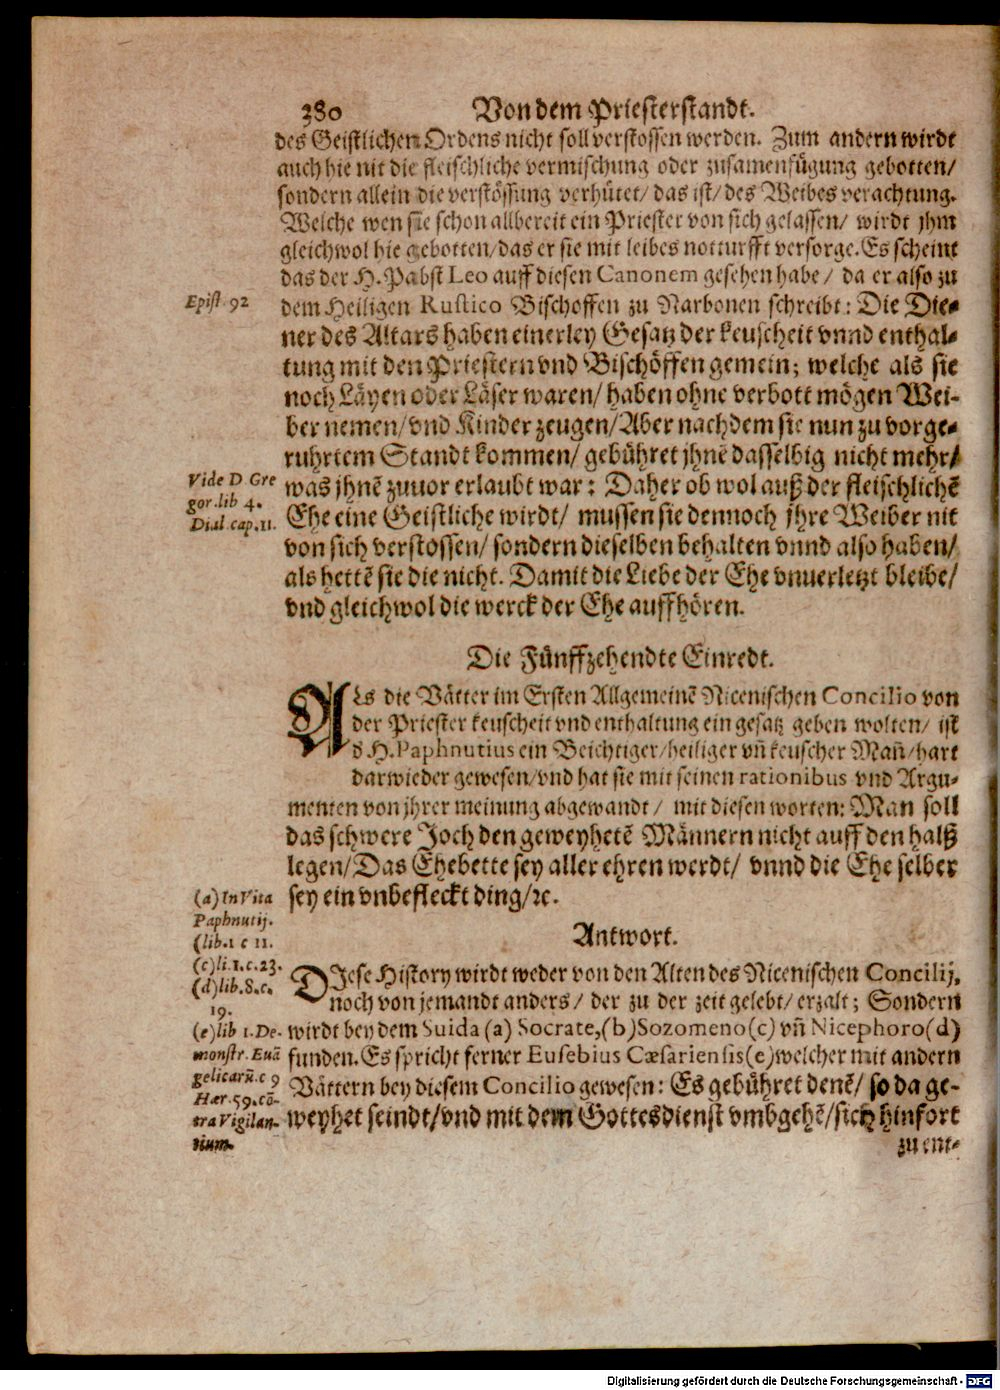 380 Von dem Priesterstandt.
des Geistlichen Ordens nicht soll verstossen werden. Zum andern wirdt
auch hie nit die fleischliche vermischung oder zusamenfügung gebotten/
sondern allein die verstössung verhütet/ das ist/ des Weibes verachtung.
Welche wen sie schon allbereit ein Priester von sich gelassen/ wirdt jhm
gleichwol hie gebotten/ das er sie mit leibes notturfft versorge. Es scheint
das der H. Pabst Leo auff diesen Canonem gesehen habe/ da er also zu
Epist. 92
dem Heiligen Rustico Bischoffen zu Narbonen schreibt: Die Die-
ner des Altars haben einerley Gesatz der keuscheit vnnd enthal-
tung mit den Priestern vnd Bischöffen gemein; welche als sie
noch Läyen oder Läser waren/ haben ohne verbott mögen Wei-
ber nemen/ vnd Kinder zeugen/ Aber nachdem sie nun zu vorge-
ruhrtem Standt kommen/ gebühret jhnē dasselbig nicht mehr/
Vide D Gre
gor. lib 4.
Dial cap. 11.
was jhnē zuuor erlaubt war: Daher ob wol auß der fleischlichē
Ehe eine Geistliche wirdt/ mussen sie dennoch jhre Weiber nit
von sich verstossen/ sondern dieselben behalten vnnd also haben/
als hettē sie die nicht. Damit die Liebe der Ehe vnuerletzt bleibe/
vnd gleichwol die werck der Ehe auffhören.
Die Fünffzehendte Einredt.
ALs die Vätter im Ersten Allgemeinē Nicenischen Concilio von
der Priester keuscheit vnd enthaltung ein gesatz geben wolten/ ist
d H. Paphnutius ein Beichtiger/ heiliger vñ keuscher Mañ/ hart
darwieder gewesen/ vnd hat sie mit seinen rationibus vnd Argu-
menten von jhrer meinung abgewandt/ mit diesen worten: Man soll
das schwere Joch den geweyhetē Männern nicht auff den halß
legen/ Das Ehebette sey aller ehren werdt/ vnnd die Ehe selber
sey ein vnbefleckt ding/ ꝛc.
Antwort.
(a) In Vita
Paphnutij.
(lib. 1 c 11.
(c) li. 1. c. 23.
(d) lib. 8. c.
19.
(e) lib 1. De-
monstr. Euā
gelicarū. c 9
Hær. 59. cō-
tra Vigilan-
tium.
DIese History wirdt weder von den Alten des Nicenischen Concilij,
noch von jemandt anders/ der zu der zeit gelebt/ erzalt; Sondern
wirdt bey dem Suida (a) Socrate, (b) Sozomeno (c) vñ Nicephoro (d)
funden. Es spricht ferner Eusebius Cæsariensis (e) welcher mit andern
Vättern bey diesem Concilio gewesen: Es gebühret denē/ so da ge-
weyhet seindt/ vnd mit dem Gottesdienst vmbgehē/ sich hinfort
zu ent-
Digitalisierung gefördert durch die Deutsche Forschungsgemeinschaft - DFG